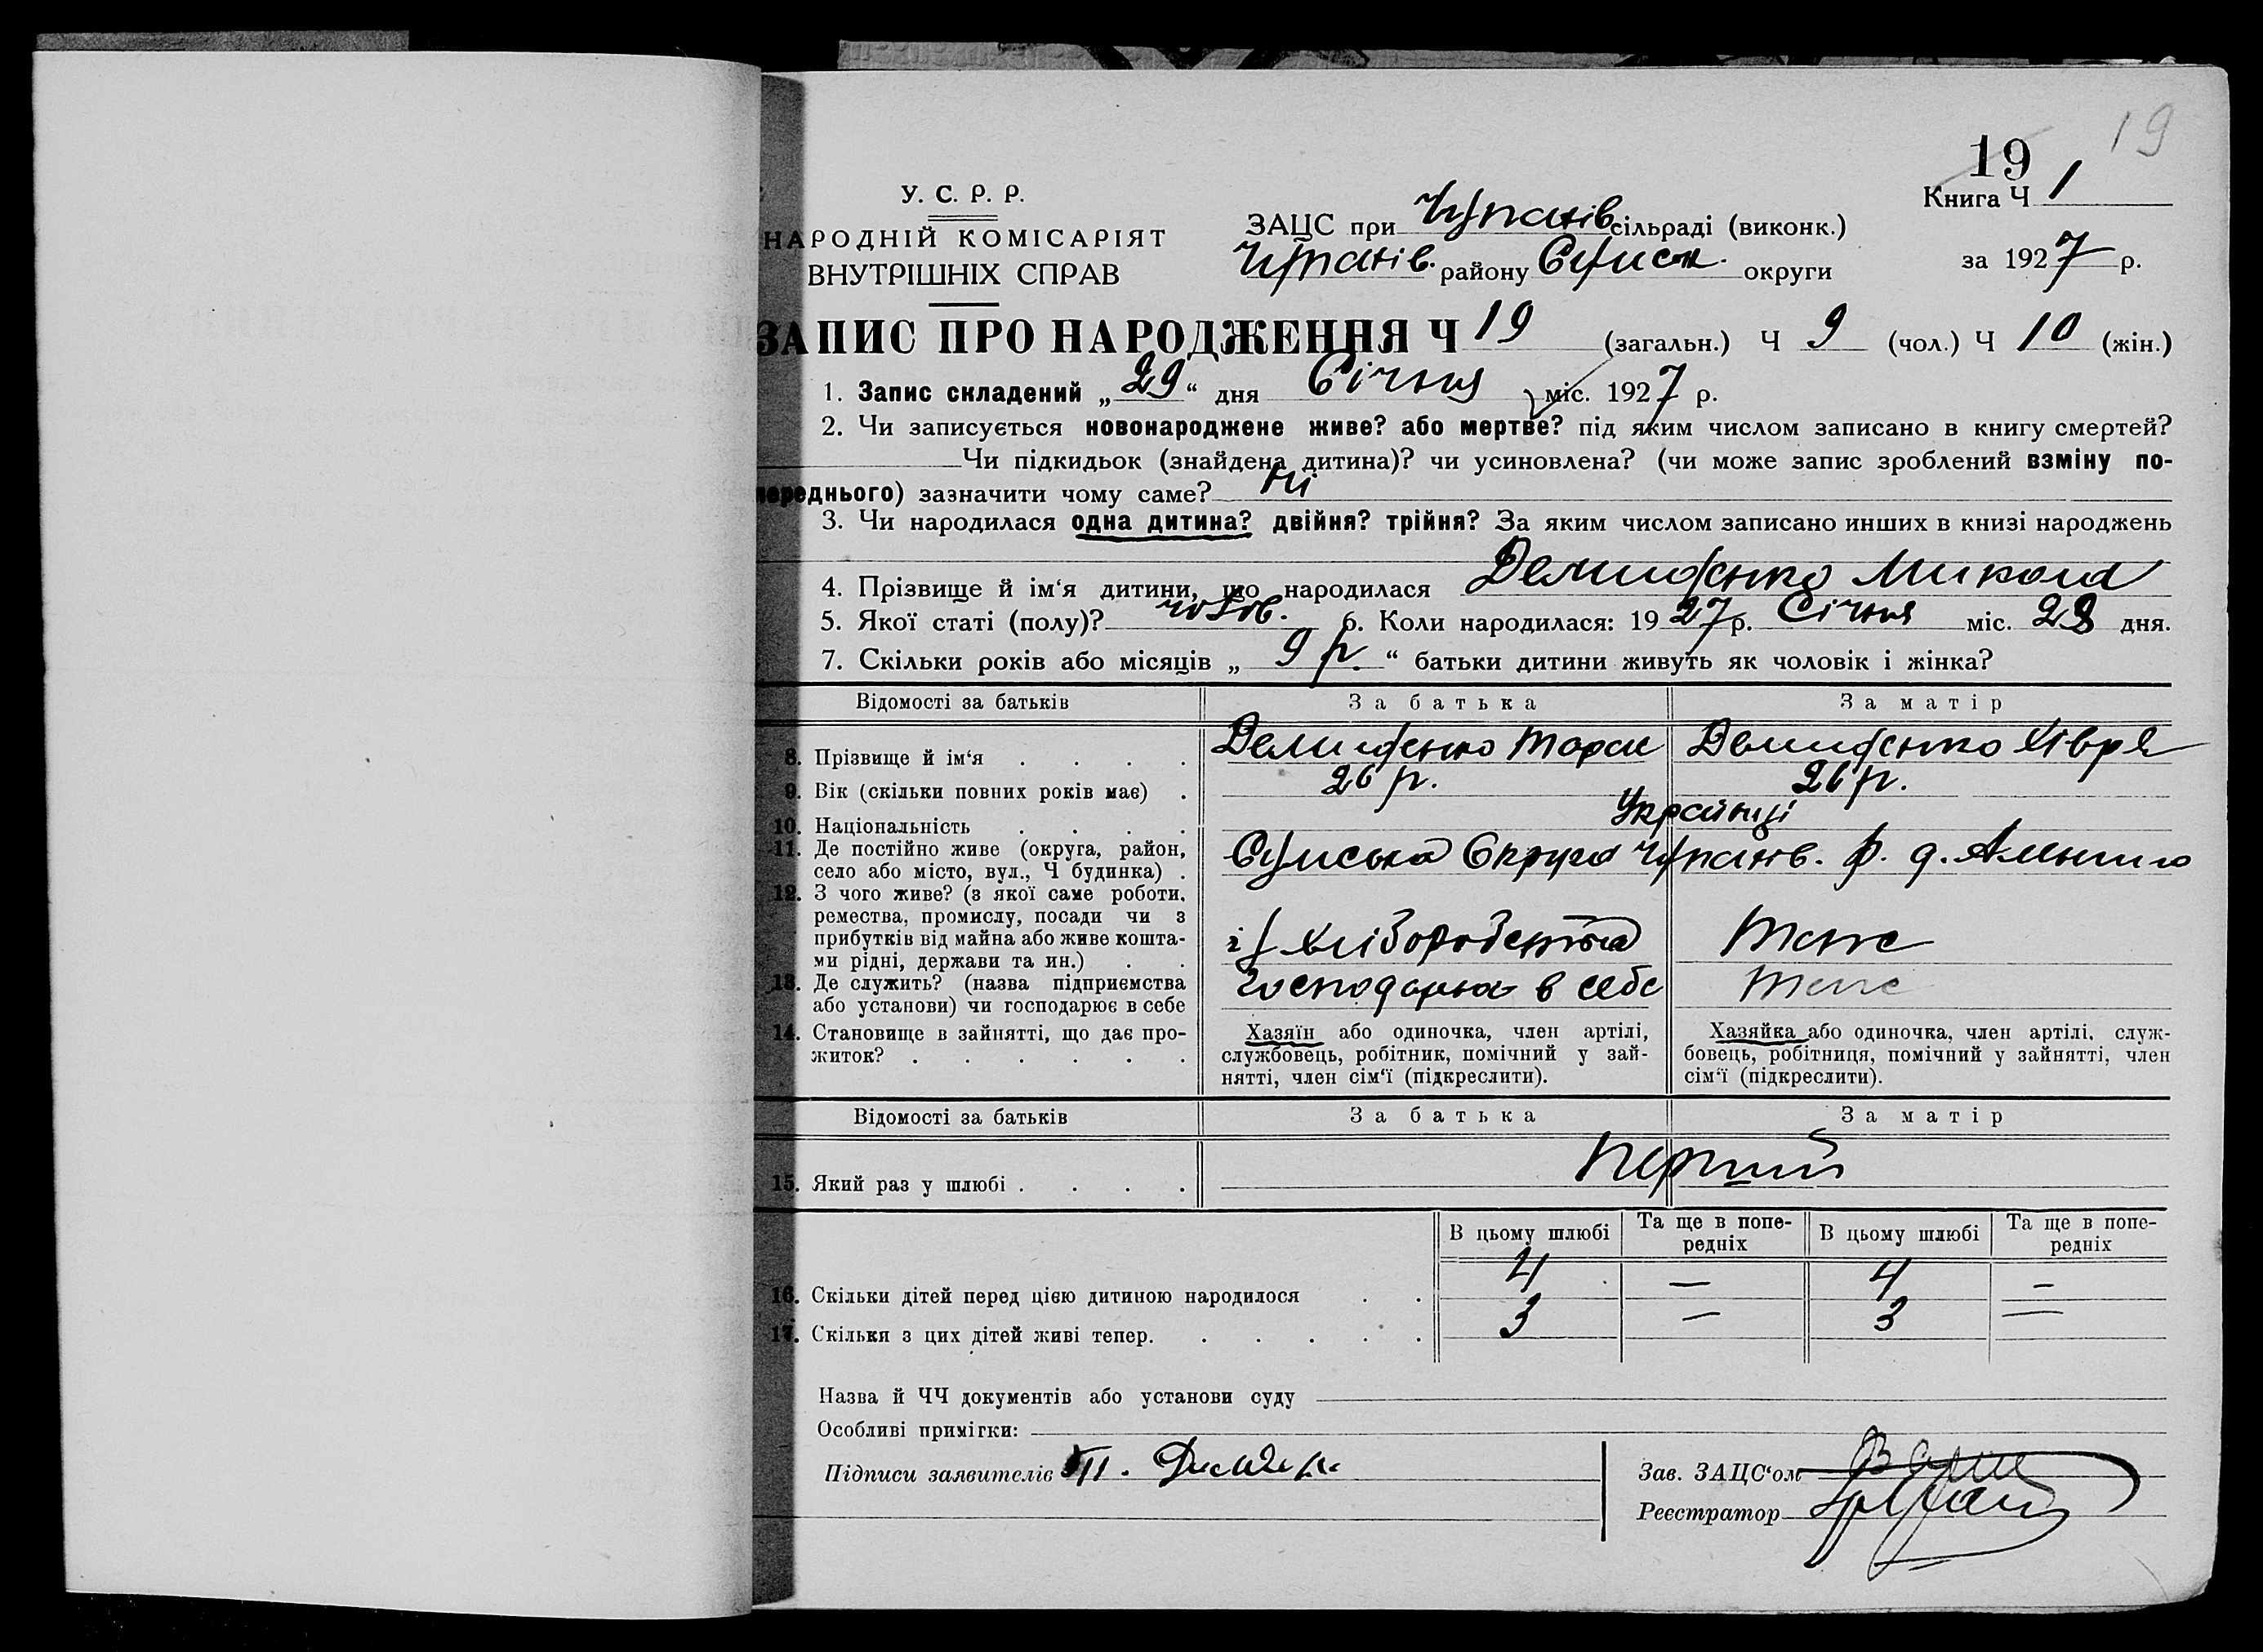 19
19
У. С. Р. Р.
НАРОДНІЙ КОМІСАРІЯТ
ВНУТРІШНІХ СПРАВ
ЗАЦС при Чупахів сільраді (виконк.)
Чупахів. району Сумськ. округи
Книга Ч 1
за 1927 р.
ЗАПИС ПРО НАРОДЖЕННЯ Ч 19 (загальн.) Ч 9 (чол.) Ч 10 (жін.)
1. Запис складений „29“ дня Січня міс. 1927 р.
2. Чи записується новонароджене живе? або мертве? під яким числом записано в книгу смертей?
Чи підкидьок (знайдена дитина)? чи усиновлена? (чи може запис зроблений взміну по-
переднього) зазначити чому саме? Ні
3. Чи народилася одна дитина? двійня? трійня? За яким числом записано инших в книзі народжень
4. Прізвище й ім‘я дитини, що народилася Микола
5. Якої статі (полу)? чолов. 6. Коли народилася: 1927 р. Січня міс. 28 дня.
7. Скільки років або місяців „ 9 р. “ батьки дитини живуть як чоловік і жінка?
Відомості за батьків За батька За матір
8. Прізвище й ім‘я . . . . Тарас Хівря
9. Вік (скільки повних років має) . 26 р. 26 р.
10. Національність . . . . Українці
11. Де постійно живе (округа, район,
село або місто, вул., Ч будинка) . Сумська Округа Чупахів. р.
12. З чого живе? (з якої саме роботи,
ремества, промислу, посади чи з
прибутків від майна або живе кошта-
ми рідні, держави та ин.) . . з хліборобства Теж
13. Де служить? (назва підприємства
або установи) чи господарює в себе господарює в себе Теж
14. Становище в зайнятті, що дає про-
житок? . . . . . .
Хазяїн або одиночка, член артілі,
службовець, робітник, помічний у зай-
нятті, член сім‘ї (підкреслити).
Хазяйка або одиночка, член артілі, служ-
бовець, робітниця, помічний у зайнятті, член
сім‘ї (підкреслити).
Відомості за батьків За батька За матір
15. Який раз у шлюбі . . . . Перший
В цьому шлюбі Та ще в попе-
редніх В цьому шлюбі Та ще в попе-
редніх
16. Скільки дітей перед цією дитиною народилося . . 4 — 4 —
17. Скількя з цих дітей живі тепер. . . . . . 3 — 3 —
Назва й ЧЧ документів або установи суду
Особливі примігки:
Підписи заявителів
Зав. ЗАЦС‘ом
Реєстратор